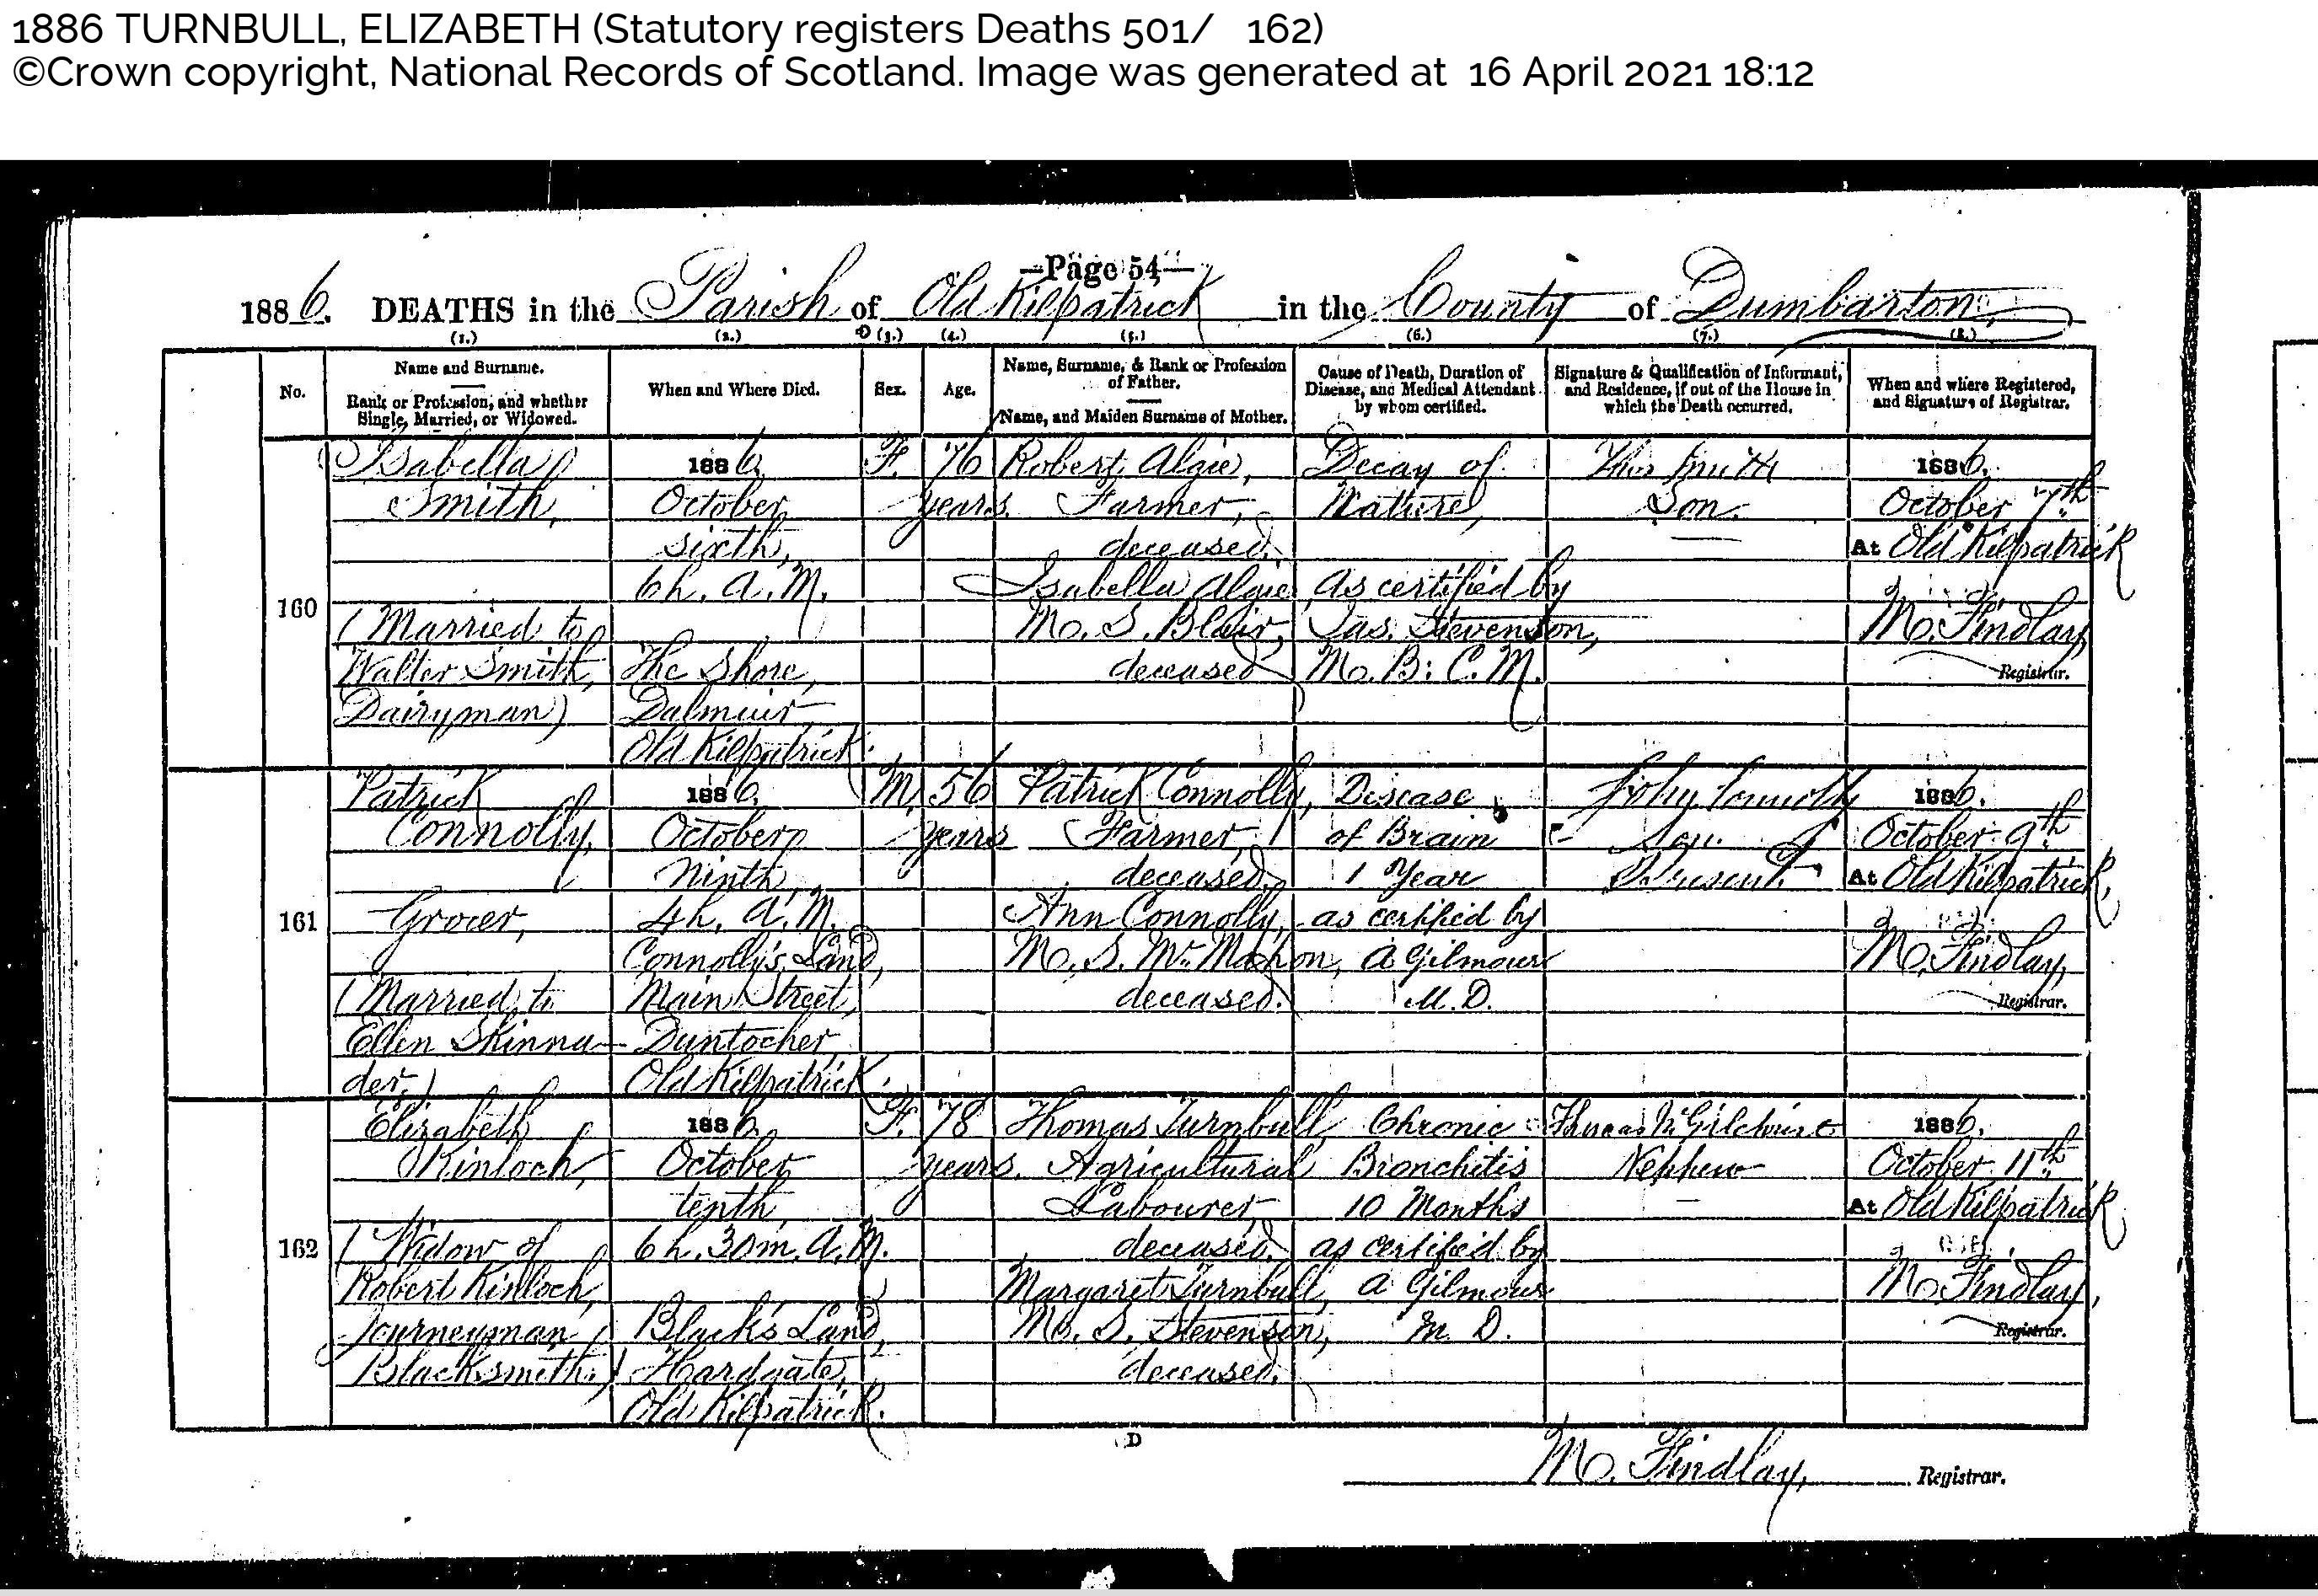 1886 TURNBULL, ELIZABETH (Statutory registers Deaths 501/ 162)
©Crown copyright, National Records of Scotland. Image was generated at 16 April 2021 18:12
—Page 54—
1886. DEATHS in the Parish of Old Kilpatrick in the County of Dumbarton,
(1.) (2.) (3.) (4.) (5.) (6.) (7.) (8.)
No.
Name and Surname.
Rank or Profession, and whether
Single, Married, or Widowed.
When and Where Died.
Sex.
Age.
Name, Surname, & Rank or Profession
of Father.
Name, and Maiden Surname of Mother.
Cause of Death, Duration of
Disease, and Medical Attendant
by whom certified.
Signature & Qualification of Informant,
and Residence, if out of the House in
which the Death occurred.
When and where Registered,
and Signature of Registrar.
160
Isabella
Smith,
(Married to
Walter Smith,
Dairyman)
1886.
October
sixth,
6h. A.M.
The Shore,
Dalmuir,
Old Kilpatrick.
F.
76
years.
Robert Algie,
Farmer,
deceased.
Isabella Algie
M.S. Blair,
deceased
Decay of
Nature,
as certified by
Jas. Stevenson,
M.B. C.M.
Thos Smith
Son.
1886.
October 7th
At Old Kilpatrick
M. Findlay,
Registrar.
161
Patrick
Connolly,
Grocer,
(Married to
Ellen Skinna-
der.)
1886.
October
Ninth,
4h. A.M.
Connolly's Land,
Main Street,
Duntocher,
Old Kilpatrick.
M.
56
years
Patrick Connolly,
Farmer,
deceased.
Ann Connolly,
M.S. McMahon,
deceased.
Disease
of Brain
1 Year
as certified by
A Gilmour
M.D.
John Connolly
Son.
Present
1886.
October 9th
At Old Kilpatrick,
M. Findlay,
Registrar.
162
Elizabeth
Kinloch,
(Widow of
Robert Kinloch,
Journeyman
Blacksmith.)
1886.
October
tenth,
6h. 30m. A.M.
Black's Land,
Hardgate,
Old Kilpatrick.
F.
78
years.
Thomas Turnbull,
Agricultural
Labourer,
deceased.
Margaret Turnbull,
M.S. Stevenson,
deceased.
Chronic
Bronchitis
10 Months
as certified by
A Gilmour
M.D.
Thomas McGilchrist
Nephew
1886.
October 11th
At Old Kilpatrick,
M. Findlay,
Registrar.
D
M. Findlay, Registrar.